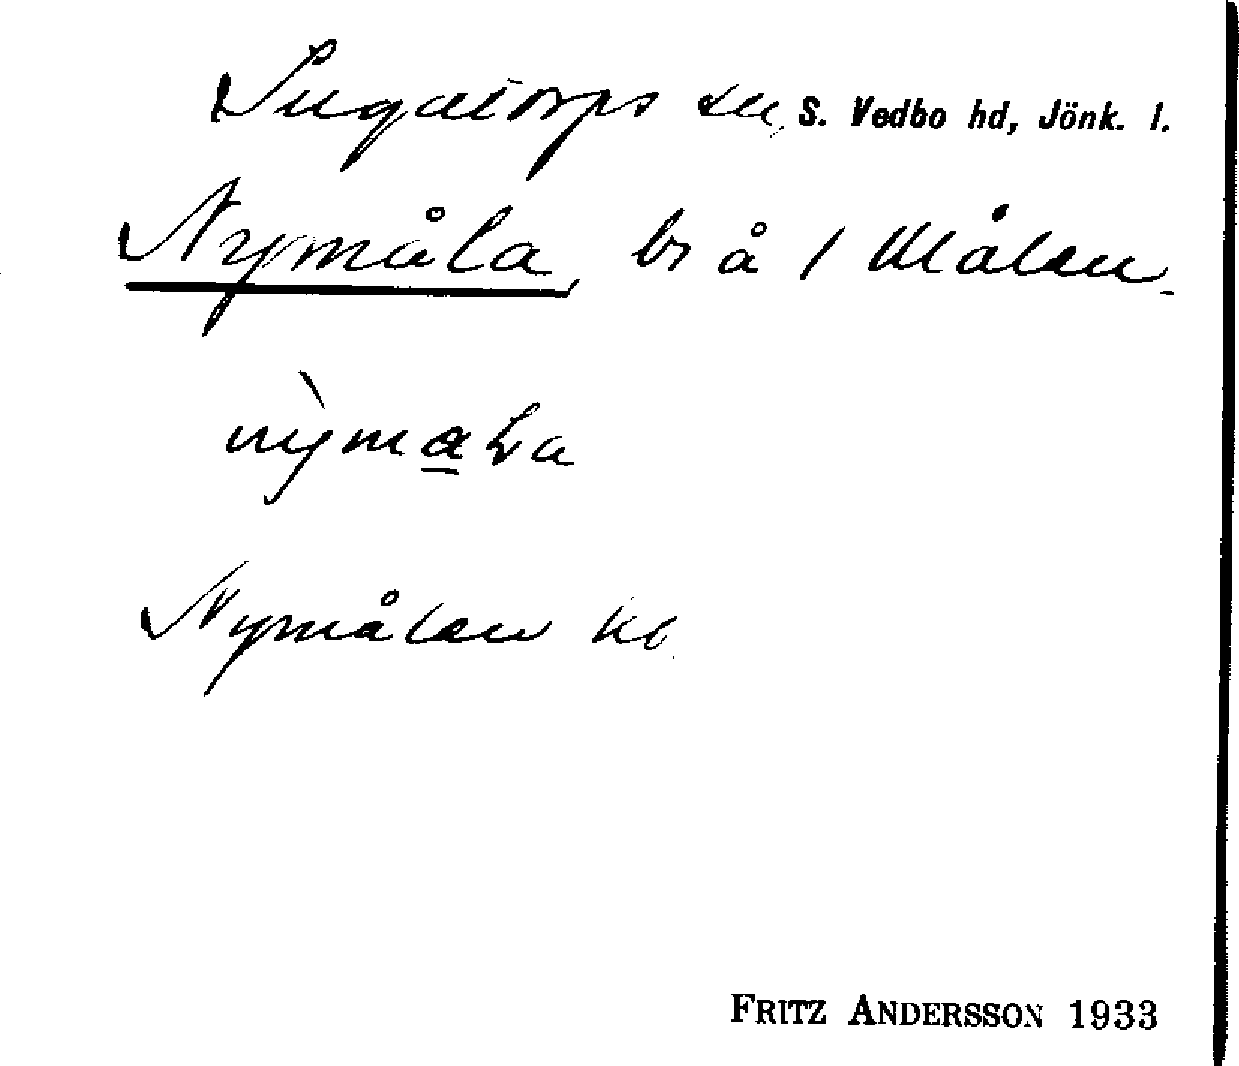 Ingatorps sn, S. Vedbo hd, Jönk. l.
Nymåla, br å 1 Målen.
nỳmaLa
Nymålen kb
FRITZ ANDERSSON 1933